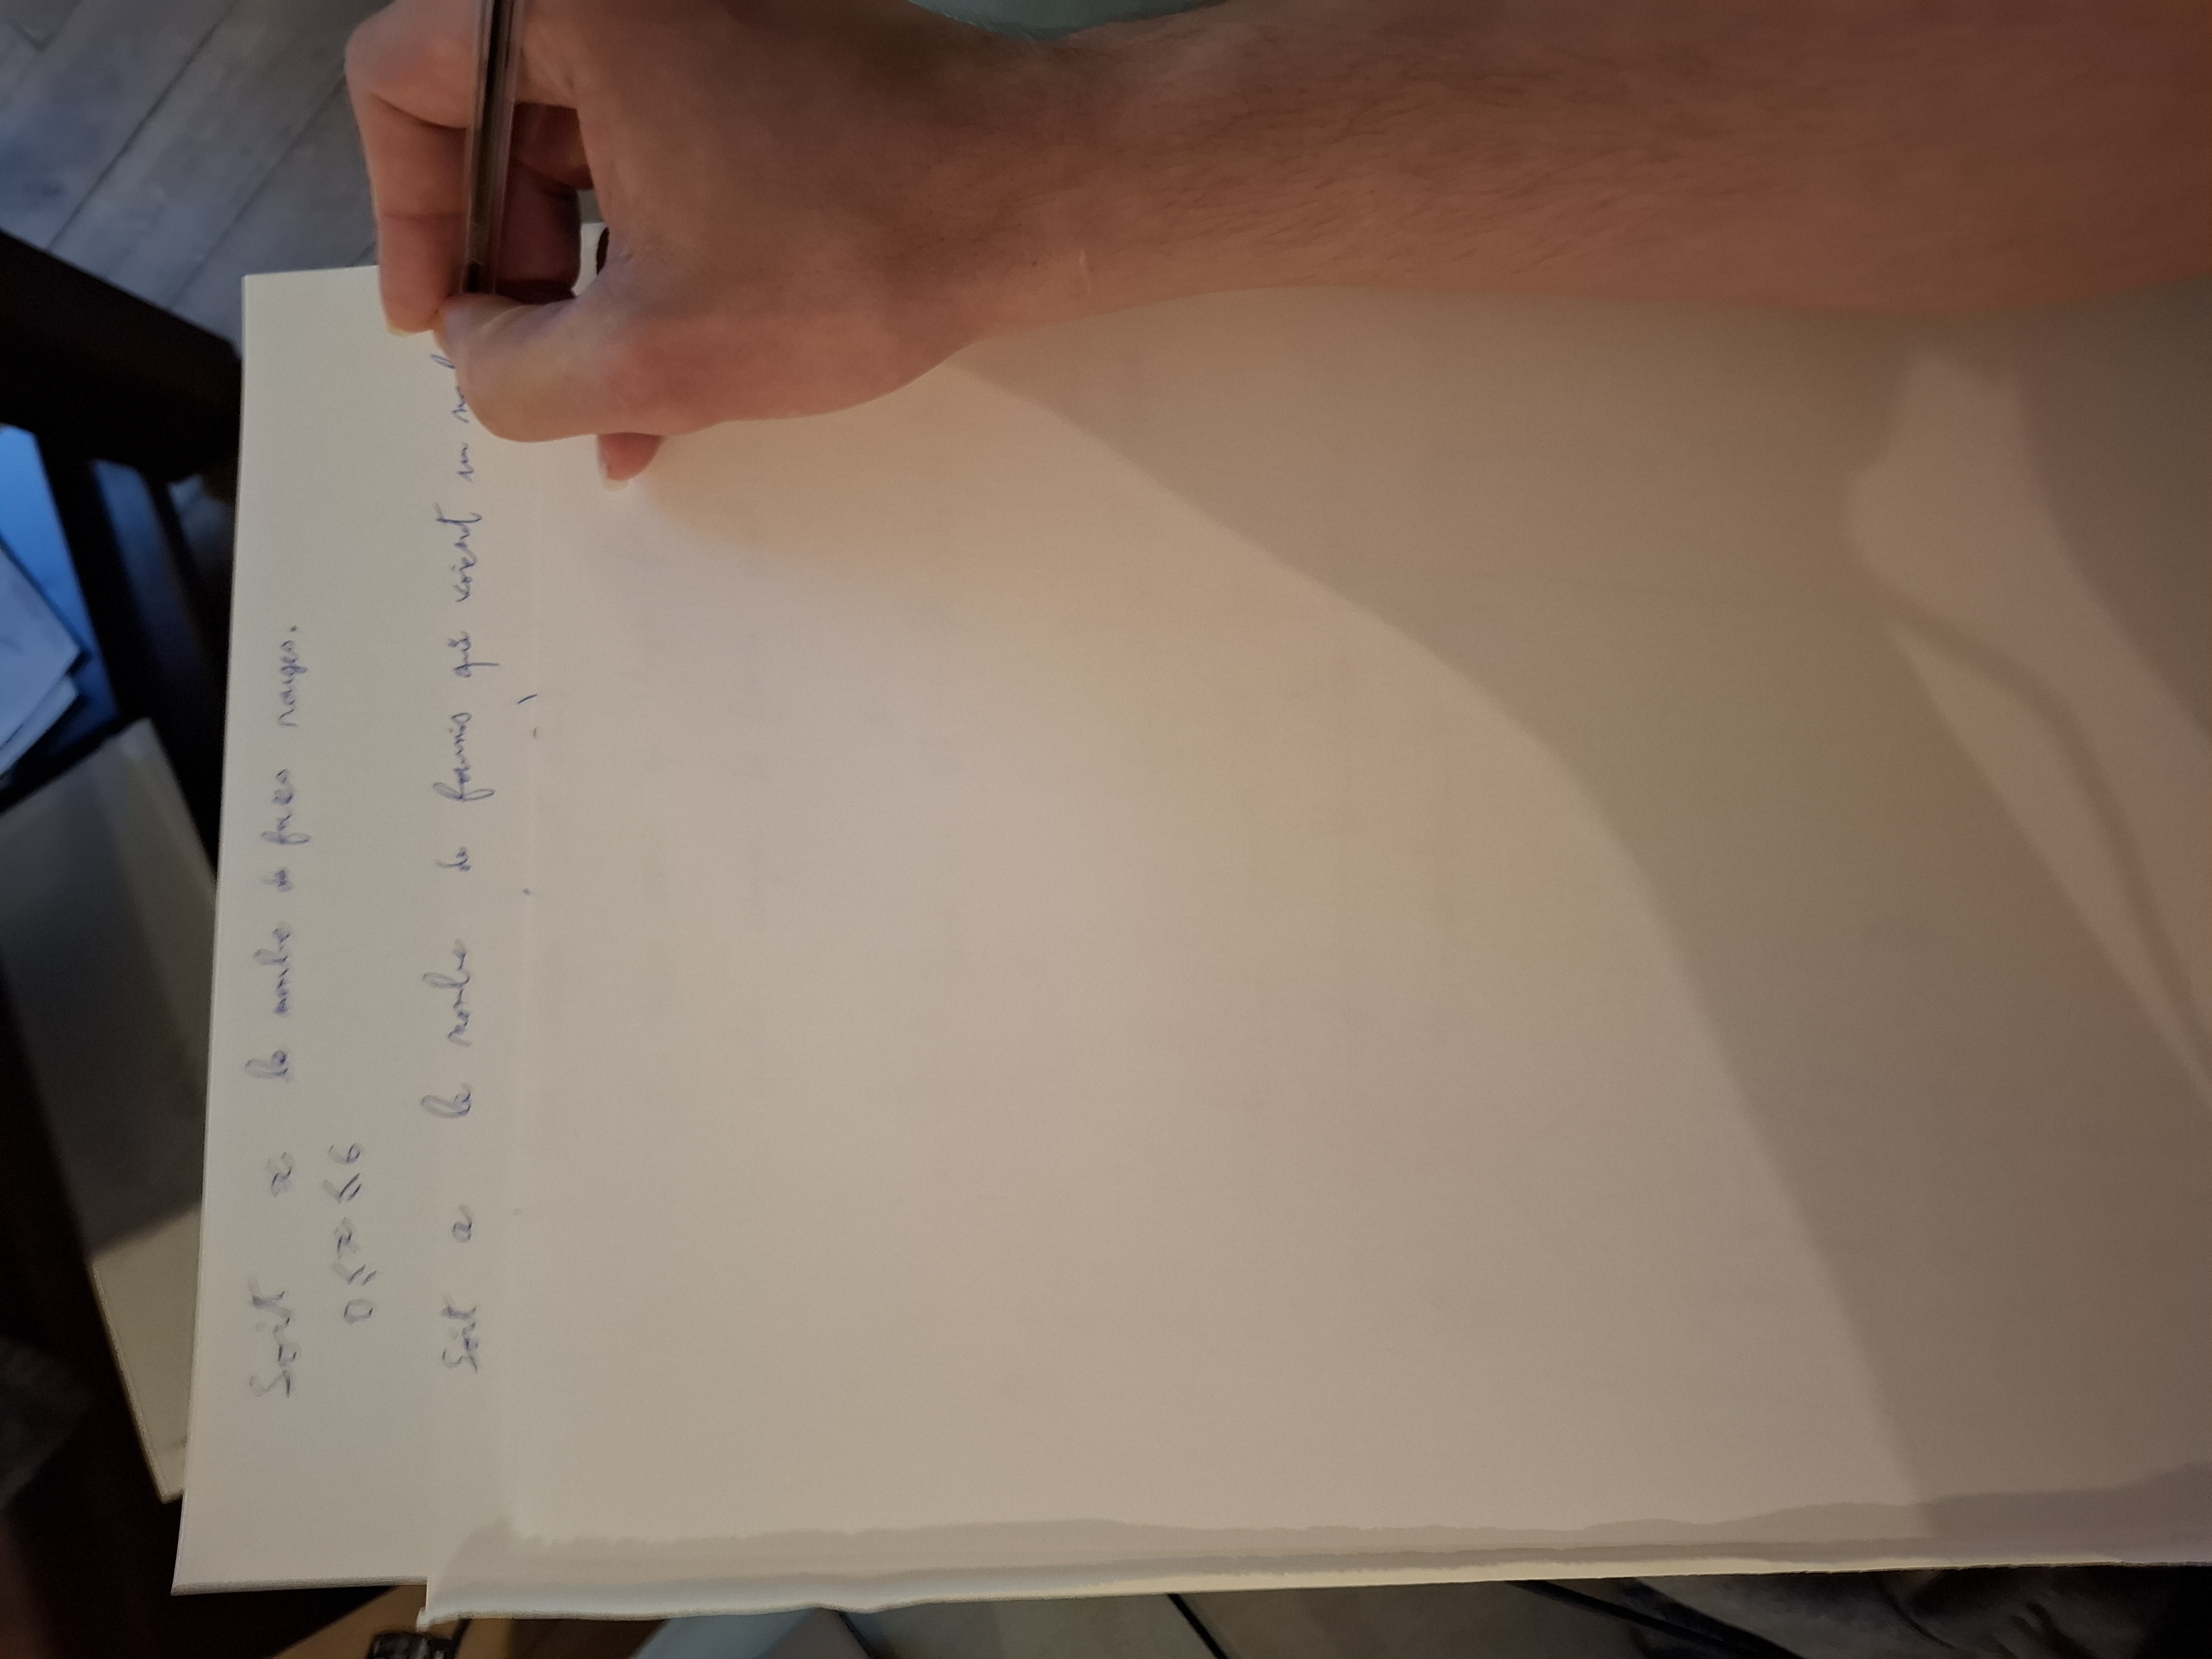 Soit x le nombre de faces rouges.
0 ≤ x ≤ 6
Soit a le nombre de fourmis qui voient un